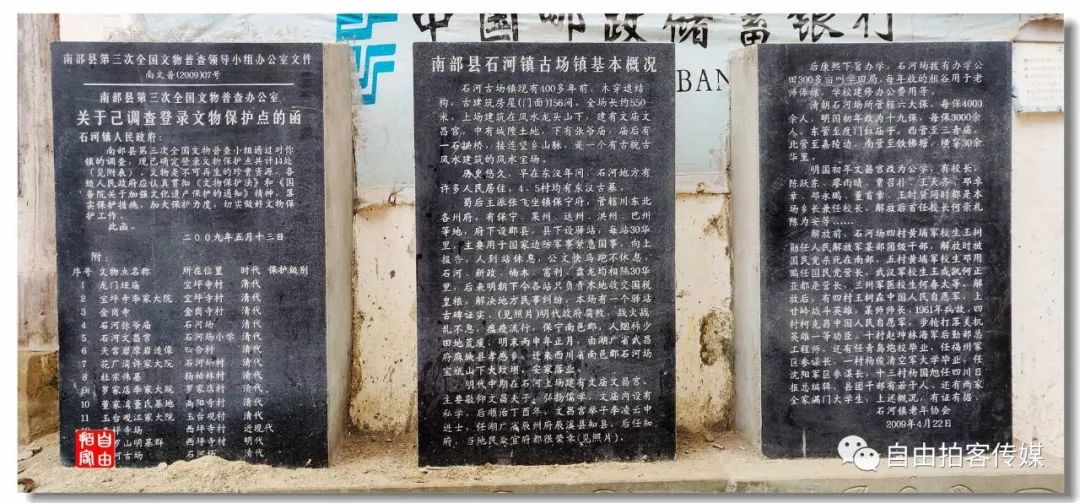 中国邮政储蓄银行
BAN
南部县第三次全国文物普查领导小组办公室文件
南文普(2009)07号
南部县第三次全国文物普查办公室
关于己调查登录文物保护点的函
石河镇人民政府:
南部县第三次全国文物普查小组通过对你
镇的调查,现已确定登录文物保护点共计14处
(见附表)。文物是不可再生的珍贵资源,各
级人民政府应认真贯彻《文物保护法》和《国
务院关于加强文化遗产保护的通知》精神,落
实保护措施,加大保护力度,切实做好文物保
护工作。
此函。
二00九年五月十三日
附:
序号 文物点名称 所在位置 时代 保护级别
1 龙门垭庙 宝坪寺村 清代
2 宝坪寺李家大院 宝坪寺村 清代
3 金岗寺 金岗寺村 清代
4 石河弥爷庙 石河场 清代
5 石河文昌宫 石河场小学 清代
6 天宫岩摩岩造像 四合村 清代
7 花厂湾许家大院 石河场村 清代
8 杜宗伟墓 杨柏林村 清代
罗家店李家大院 罗家店村 清代
10 董家湾董氏墓地 高阳寺村 清代
11 玉台观江家大院 玉台观村 清代
坪寺场 西坪寺村 近现代
罗山明墓群 西坪寺村 明代
河古场 石河场 清代
南部县石河镇古场镇基本概况
石河古场镇现有400多年前,木穿逗结
构,古建筑房屋(门面)156间,全场长约550
米,上场建筑在风水龙头山下,建有文庙文
昌宫,中有城隍土地,下有张爷庙,庙后有
一石拱桥,接连望乡山脉,是一个有古貌古
风水建筑的风水宝场。
历史悠久,早在东汉年间,石河地方有
许多人民居住,4、5村均有东汉古墓。
蜀后主派张飞坐镇保宁府,管辖川东北
各州府,有保宁、果州、达州、洪州、巴州
等地,府下设郡县,县下设驿站,每站30华
里,主要用于国家边防军事紧急国事,向上
报告,人到站休息,公文快马跑不休息,
石河、新政、楠木、富利、盘龙均相隔30华
里,后朝期下令各站只负责本地收交国税
皇粮,解决地方民事纠纷,本场有一个驿站
古碑证实。(见照片)明代政府腐败,战火战
乱不息,瘟疫流行,保宁南邑郡,人烟稀少
田地荒废,明末丙申年正月,由湖广省武昌
府麻城县孝感乡,迁来西川省南邑郡石河场
宝瓶山下大坟坝,安家落业。
明代中期在石河上场建有文庙文昌宫,
主要敬仰文昌夫子,弘扬儒学,文庙内设有
私学,后顺治丁酉年,文昌宫举子李凌云中
进士,任湖广省辰州府辰溪县知县,后任知
府,当地民众官府都很爱幸(见照片)。
后康熙下旨办学,石河场拨有办学公
田300多亩叫学田局,每年收的租谷用于老
师俸禄,学校建修办公费用等。
清朝石河场所管辖六大保,每保4000
余人,明国初年改为十九保,每保3000余
人,东管至度门红庙子,西管至三青庙,
北管至嘉陵动,南管至铁佛塘,横管30余
华里。
明国初年文昌宫改为公学,有校长,
陈跃东、廖雨晴、贾召朴、王天齐、邓奉
章、邓永鹏、董首章、王时
场乡长兼任校长,解放后首任校长何崇礼
陈为安等……
解放前,石河场四村黄埔军校生王树
勋任人民解放军某部团级干部,解放时被
国民党杀死在南部,五村黄埔军校生邓用
鹏任国民党营长,武汉军校生王成佩何正
亚都是营长,兰州军医校生何春太等,解
放后,有四村王树森中国人民自愿军,上
甘岭战斗英雄,某师师长,1961年病故,四
村柯克富中国人民自愿军,步枪打落美机
英雄一等功臣,十中村赵坤林海军后勤部总
工程师,还有任青岛炮校毕业,任福州军
区参谋长,一村杨俊清空军大学毕业,任
沈阳军区参谋长,十三村杨国旭任四川日
报总编辑,县团干部有若干人,还有两家
全家满门大学生,上述概况,有证有据。
石河镇老年协会
2009年4月22日
自由拍客
自由拍客传媒